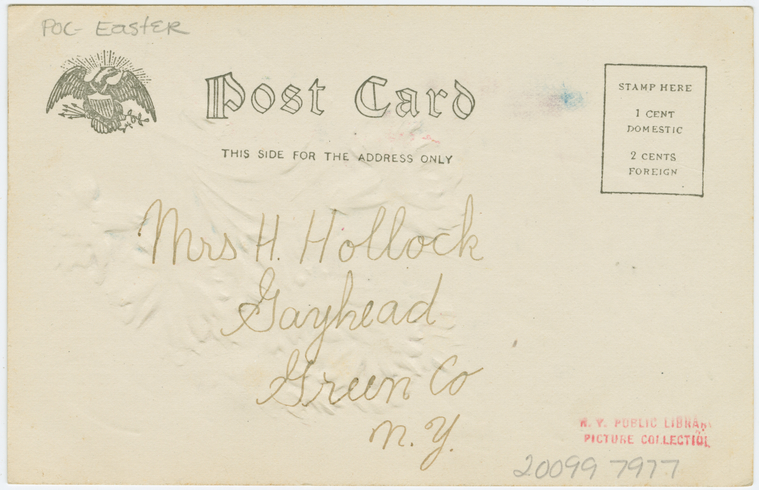 POC- Easter
Post Card
THIS SIDE FOR THE ADDRESS ONLY
STAMP HERE
1 CENT
DOMESTIC
2 CENTS
FOREIGN
Mrs H. Hollock
Gayhead
Green Co
N.Y.
N. Y. PUBLIC LIBRARY
PICTURE COLLECTION
20099 7977